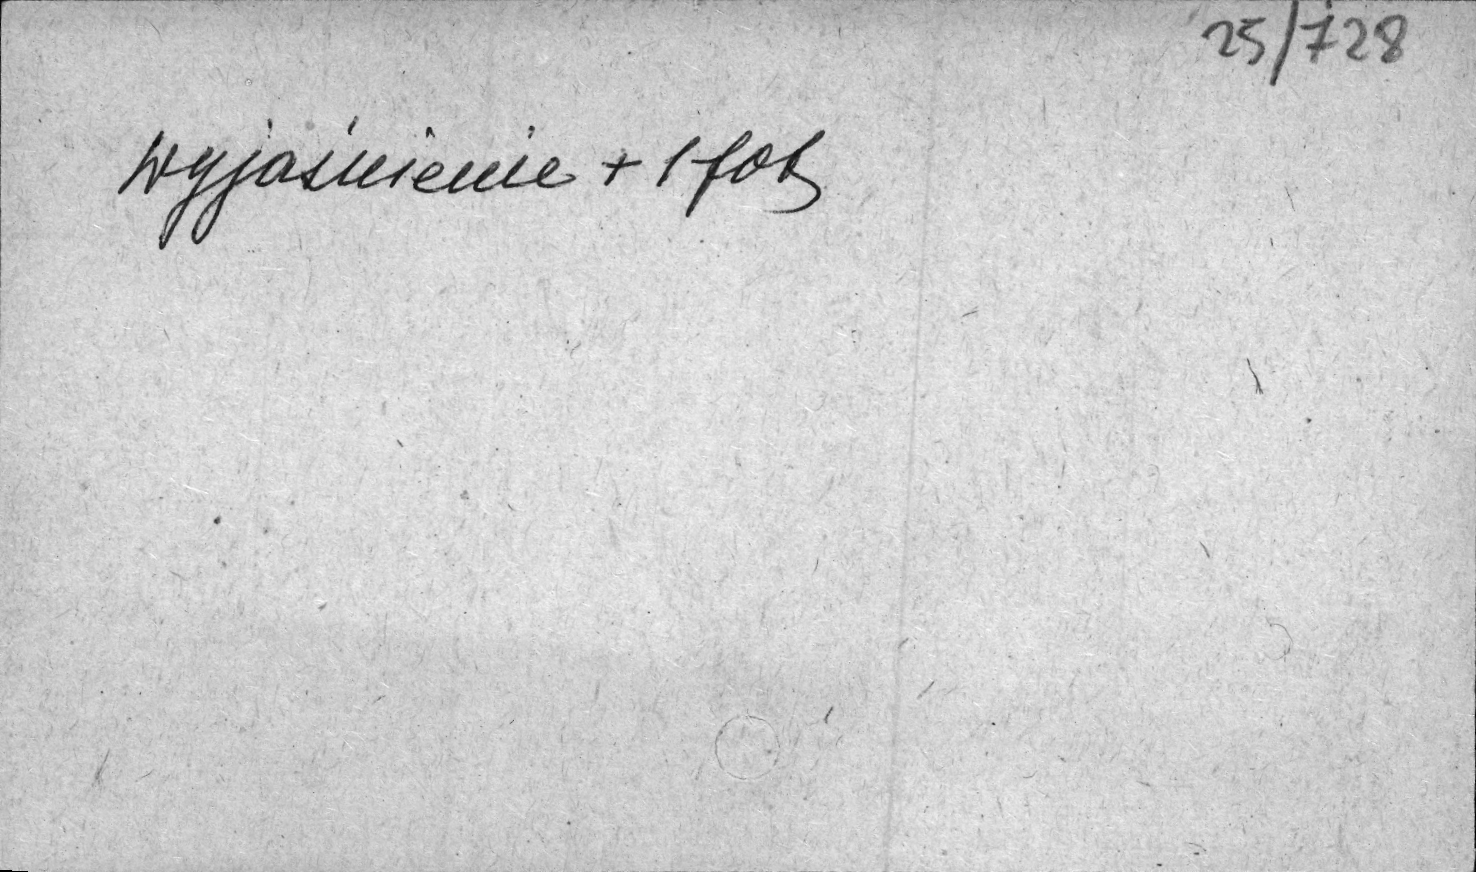 25/728
wyjaśnienie + 1 fot